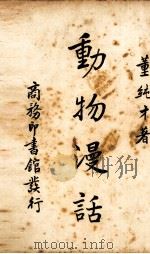 董純才著
動物漫話
商務印書館發行
www.toopoo.com